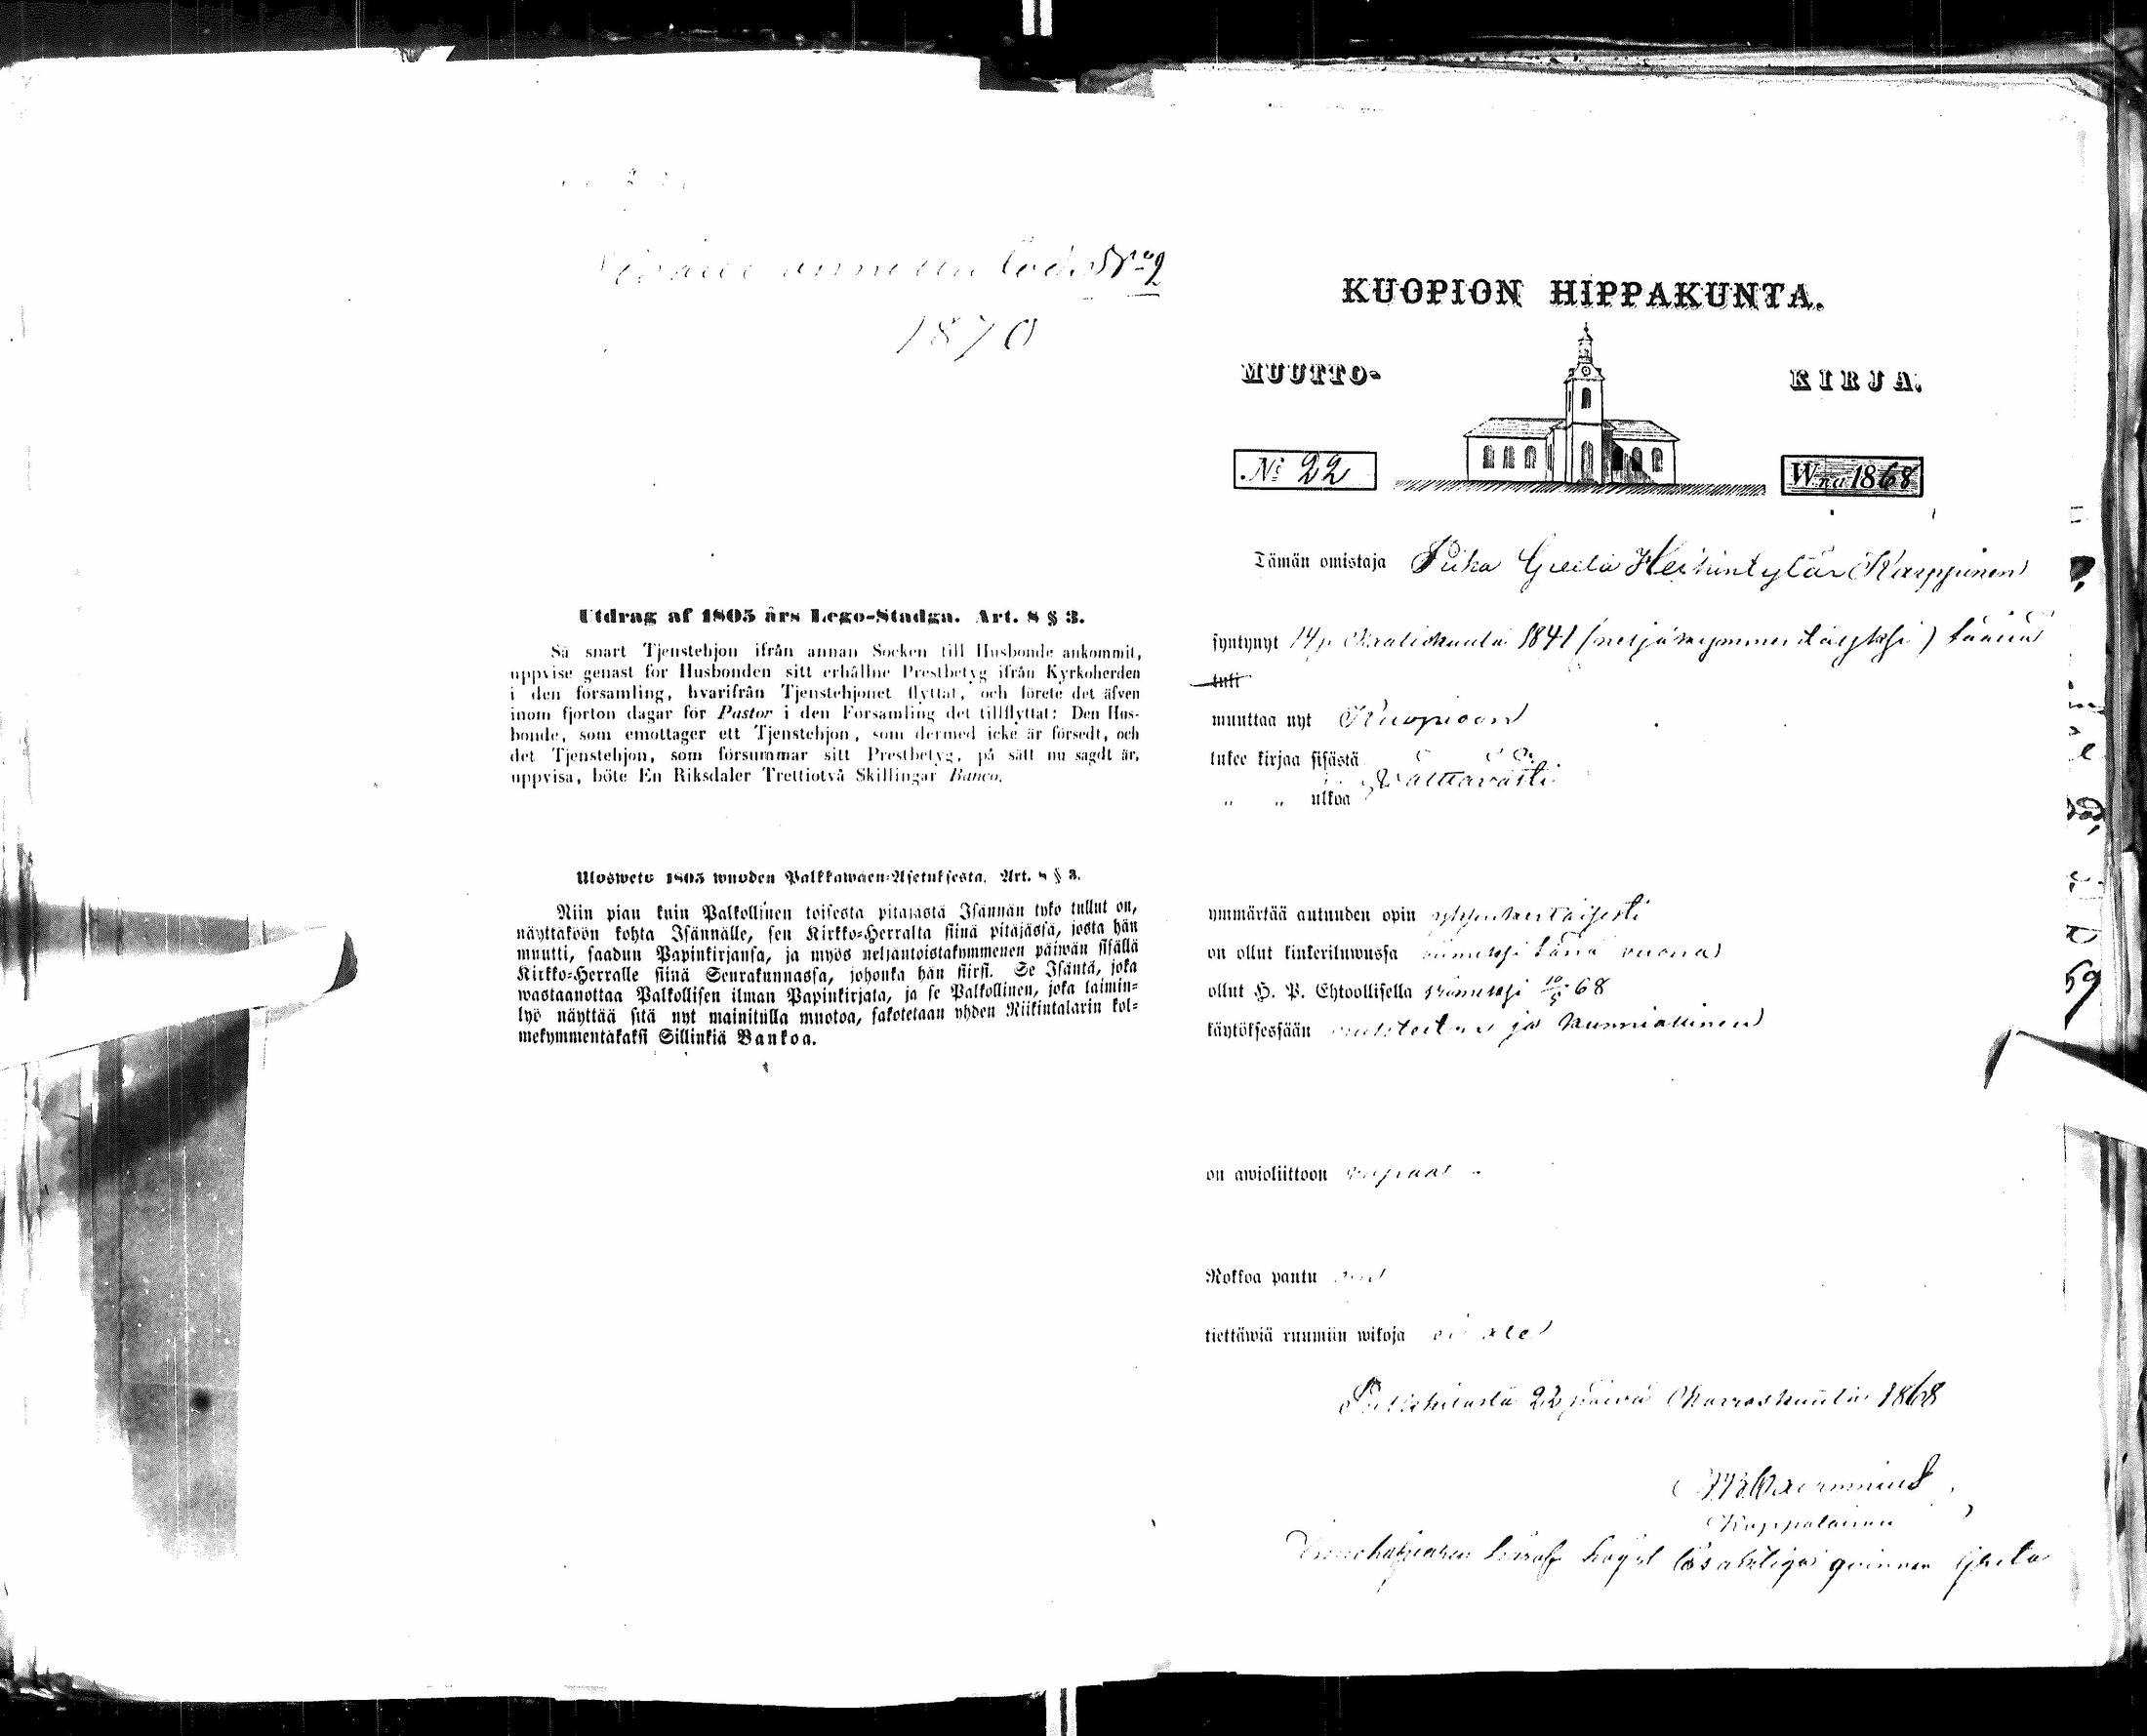 No 2
1870
Utdrag af 1805 års Lego-Stadga. Art. 8 § 3.
Så snart Tjenstehjon ifrån annan Socken till Husbonde ankommit,
uppvise genast för Husbonden sitt erhållne Prestbetyg ifrån Kyrkoherden
i den församling, hvarifrån Tjenstehjonet flyttat, och förete det äfven
inom fjorton dagar för Pastor i den Församling det tillflyttat: Den Hus-
bonde, som emottager ett Tjenstehjon, som dermed icke är försedt, och
det Tjenstehjon, som försummar sitt Prestbetyg, på sätt nu sagdt är,
uppvisa, böte En Riksdaler Trettiotvå Skillingar Banco.
Ulosweto 1805 wuoden Palkkawäen-Asetuksesta. Art. 8 § 3.
Niin pian kuin Palkollinen toisesta pitäjästä Isännän tykö tullut on,
näyttäköön kohta Isännälle, sen Kirkko-Herralta siinä pitäjässä, josta hän
muutti, saadun Papinkirjansa, ja myös neljäntoistakymmenen päiwän sisällä
Kirkko-Herralle siinä Seurakunnassa, johonka hän siirsi. Se Isäntä, joka
wastaanottaa Palkollisen ilman Papinkirjata, ja se Palkollinen, joka laimin-
lyö näyttää sitä nyt mainitulla muotoa, sakotetaan yhden Riikintalarin kol-
mekymmentäkaksi Sillinkiä Bankoa.
KUOPION HIPPAKUNTA.
MUUTTO- KIRJA.
No 22 Wna 1868
Tämän omistaja Piika Greeta Heikintytär Karppinen
syntynyt 14 p 1841 (neljäkymmentäyksi) täällä
tuli
muuttaa nyt Kuopioon
lukee kirjaa sisästä
" " ulkoa Välttävästi
ymmärtää autuuden opin yksinkertaisesti
on ollut kinkeriluwussa viimeksi tänä vuonna
ollut H. P. Ehtoollisella viimeksi 10/5 68
käytöksessään ja kunniallinen
on awioliittoon vapaa
Rokkoa pantu on
tiettäwiä ruumiin wikoja ei ole
22 päivä Marraskuuta 1868
Kappalainen
lösaktiga qvinnan Greta